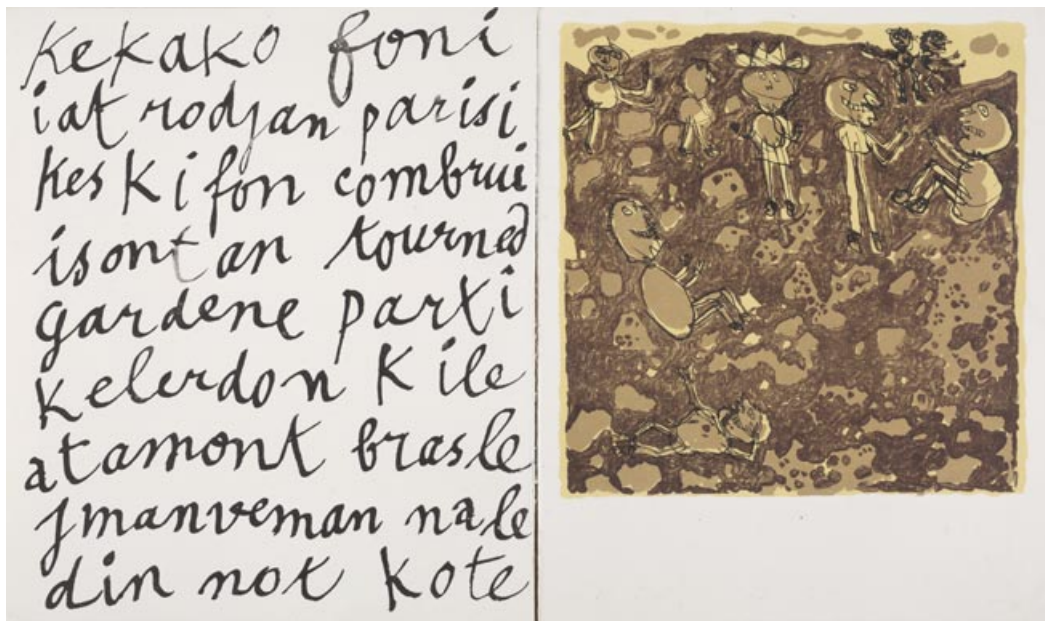 kekako foni
iat rodjan parisi
kes ki fon combrui
isont an tourned
gardene parti
kelerdon k ile
atamont brasle
jmanveman nale
din not kote